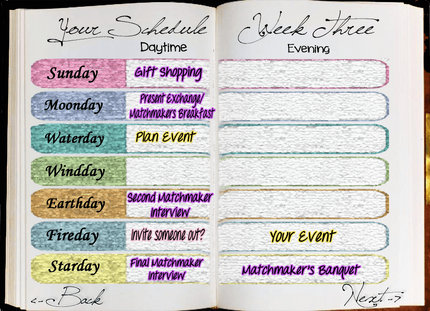 Your Schedule
Week Three
Daytime
Evening
Sunday
Gift Shopping
Moonday
Present Exchange/
Matchmakers Breakfast
Waterday
Plan Event
Windday
Earthday
Second Matchmaker
Interview
Fireday
Invite someone out?
Your Event
Starday
Final Matchmaker
Interview
Matchmaker's Banquet
<-Back
Next->